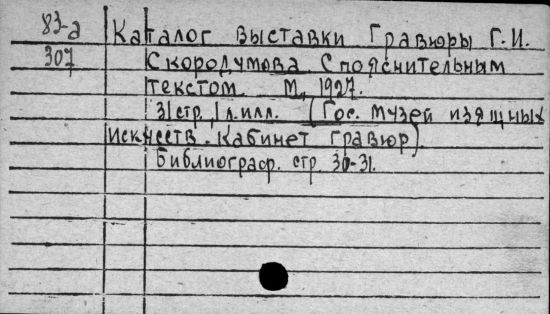 83-а Каталог выставки Гравюры Г.И.
307 Скородумова. С пояснительным
текстом. М., 1927.
31 стр., 1 л. илл. (Гос. музей изящных
искусств. Кабинет гравюр).
Библиограф. стр. 30-31.